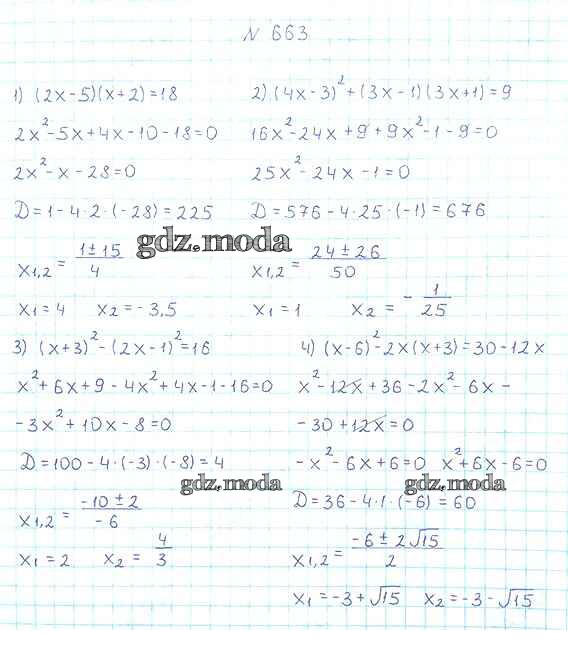 N 663
1) (2x-5)(x+2)=18
2x²-5x+4x-10-18=0
2x²-x-28=0
D=1-4·2·(-28)=225
x₁,₂ = (1±15)/4
x₁=4 x₂=-3,5
2) (4x-3)²+(3x-1)(3x+1)=9
16x²-24x+9+9x²-1-9=0
25x²-24x-1=0
D=576-4·25·(-1)=676
x₁,₂ = (24±26)/50
x₁=1 x₂ = -1/25
gdz.moda
3) (x+3)²-(2x-1)²=16
x²+6x+9-4x²+4x-1-16=0
-3x²+10x-8=0
D=100-4·(-3)·(-8)=4
x₁,₂ = (-10±2)/-6
x₁=2 x₂ = 4/3
gdz.moda
4) (x-6)²-2x(x+3)=30-12x
x²-12x+36-2x²-6x-
-30+12x=0
-x²-6x+6=0 x²+6x-6=0
D=36-4·1·(-6)=60
x₁,₂ = (-6±2√15)/2
x₁=-3+√15 x₂=-3-√15
gdz.moda